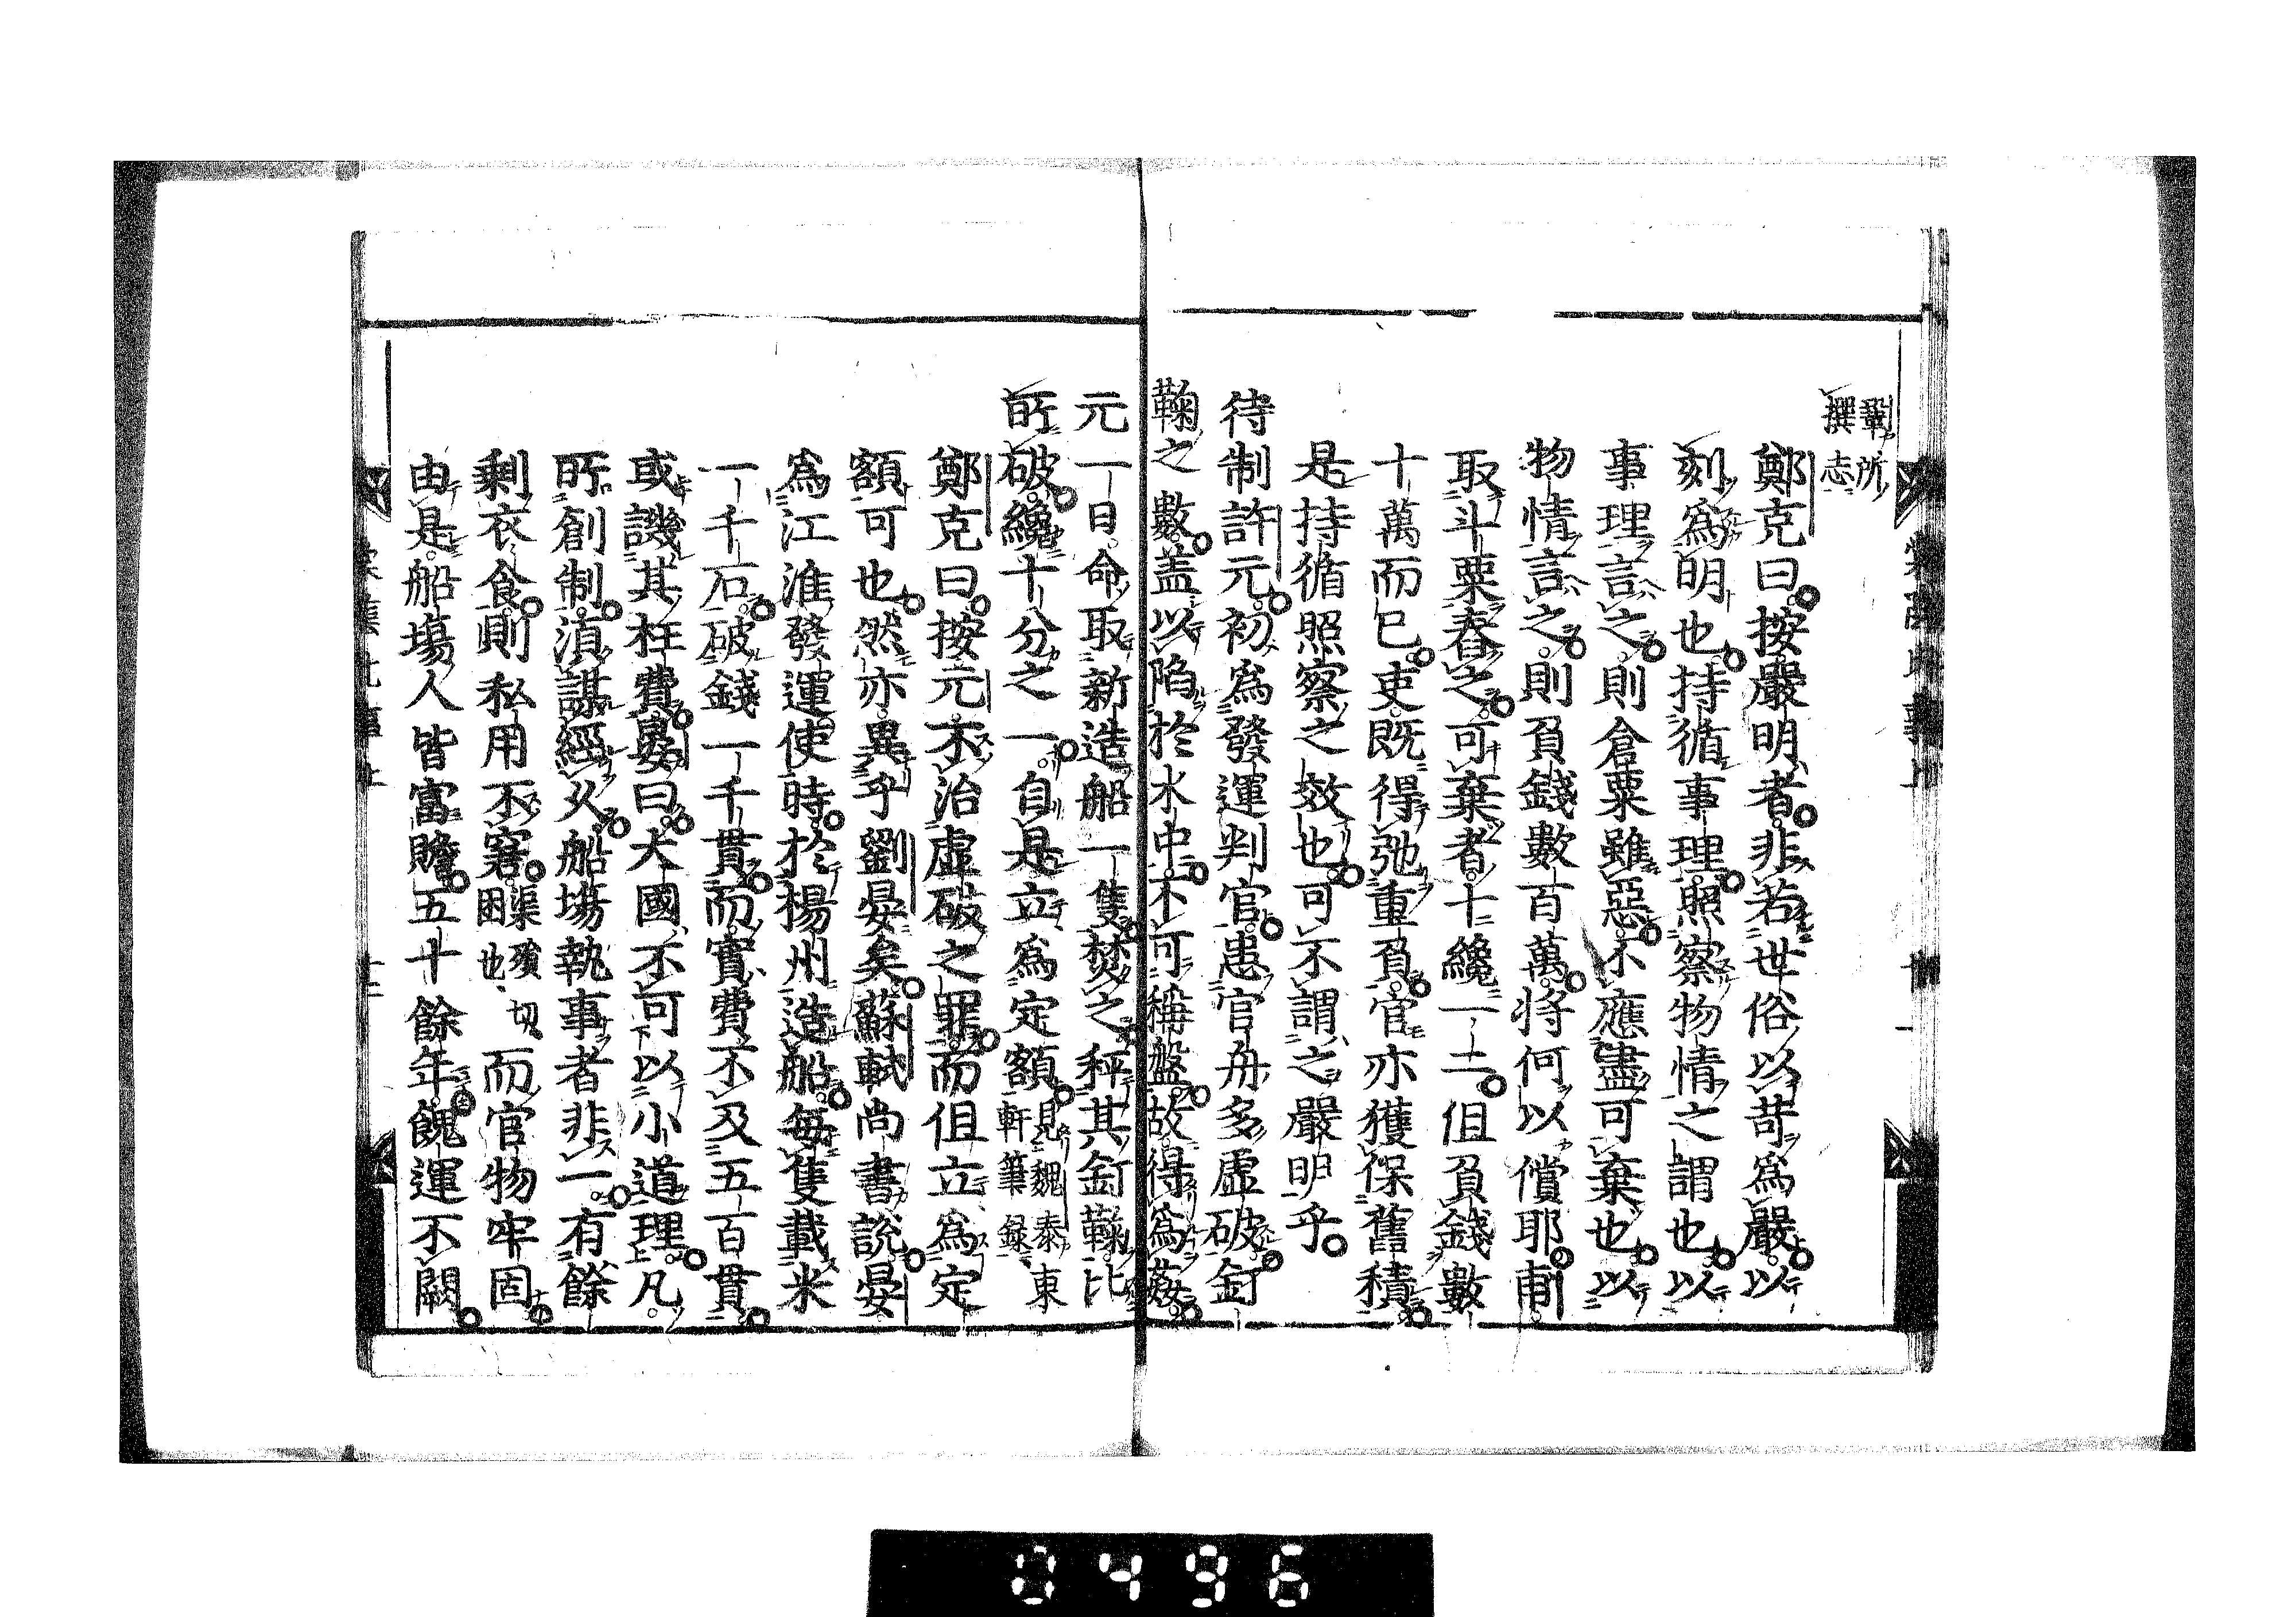 鞏所
撰志
鄭克曰按嚴明者非若世俗以苛爲嚴以
刻爲明也持循事理照察物情之謂也以
事理言之則倉粟雖惡不應盡可棄也以
物情言之則負錢數百萬將何以償耶
取斗粟舂之可棄者十纔一二伹負錢數
十萬而已吏既得弛重負官亦獲保舊積
是持循照察之效也可不謂之嚴明乎
待制許元初爲發運判官患官舟多虛破釘
鞠之數盖以陷於水中不可稱盤故得爲姦
元一日命取新造船一隻焚之秤其釘鞠比
所破纔十分之一自是立爲定額見魏泰東
軒筆録
鄭克曰按元不治虛破之罪而伹立爲定
額可也然亦異乎劉晏矣蘇軾尚書說晏
爲江淮發運使時於楊州造船每隻載米
一千石破錢一千貫而實費不及五百貫
或譏其枉費晏曰大國不可以小道理凡
所創制湏謀經久船塲執事者非一有餘
剩衣食則私用不窘渠殞切
困也而官物牢固
由是船塲人皆富贍五十餘年餽運不闕
0496